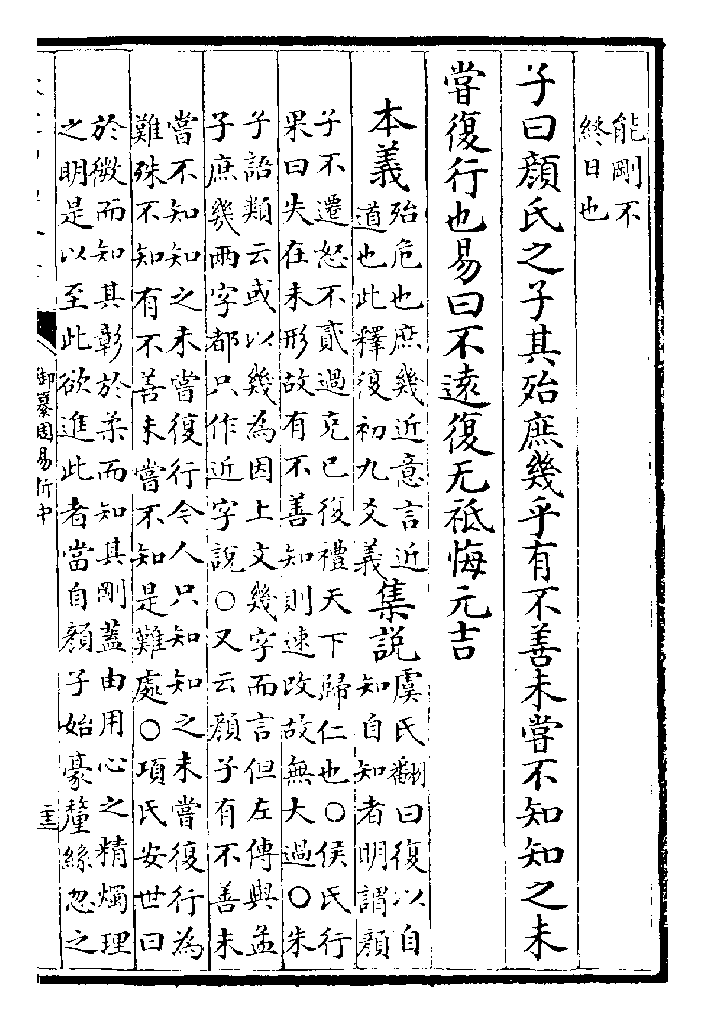 能剛不
終日也
子曰顏氏之子其殆庶幾乎有不善未嘗不知知之未
嘗復行也易曰不遠復无祗悔元吉
本義
殆危也庶幾近意言近
道也此釋復初九爻義
集說
虞氏翻曰復以自
知自知者明謂顏
子不遷怒不貳過克己復禮天下歸仁也○侯氏行
果曰失在未形故有不善知則速改故無大過○朱
子語類云或以幾為因上文幾字而言但左傳與孟
子庶幾兩字都只作近字說○又云顏子有不善未
嘗不知知之未嘗復行今人只知知之未嘗復行為
難殊不知有不善未嘗不知是難處○項氏安世曰
於微而知其彰於柔而知其剛蓋由用心之精燭理
之明是以至此欲進此者當自顏子始豪釐絲忽之
御纂周易折中